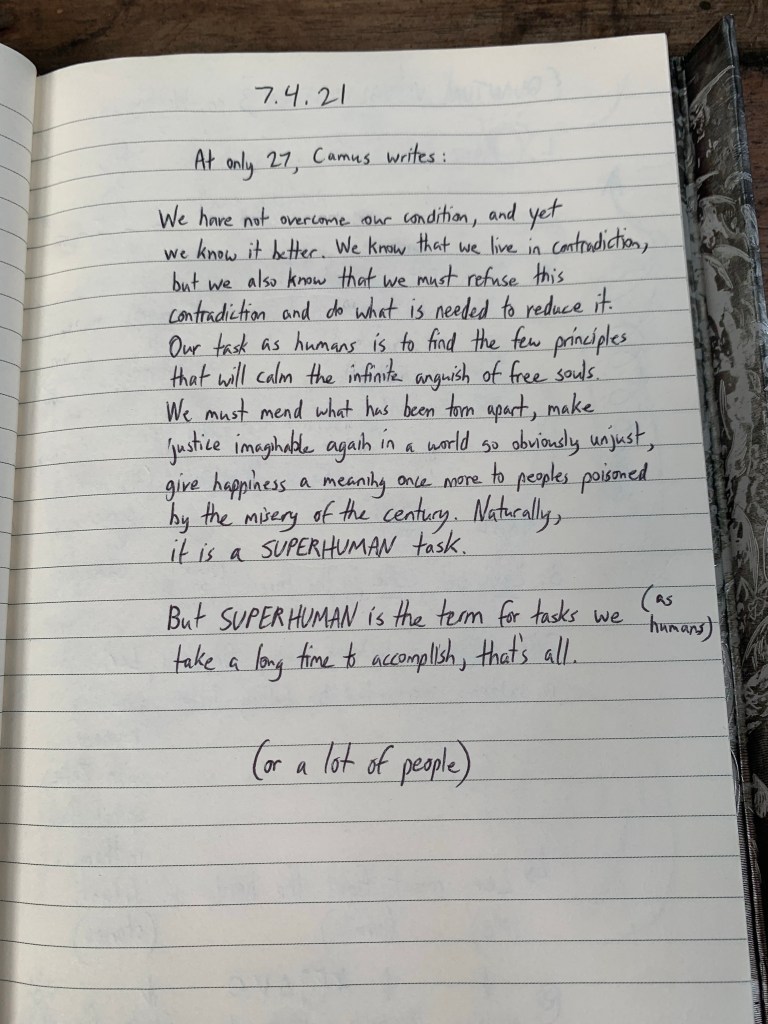 7.4.21
At only 27, Camus writes:
We have not overcome our condition, and yet
we know it better. We know that we live in contradiction,
but we also know that we must refuse this
contradiction and do what is needed to reduce it.
Our task as humans is to find the few principles
that will calm the infinite anguish of free souls.
We must mend what has been torn apart, make
justice imaginable again in a world so obviously unjust,
give happiness a meaning once more to peoples poisoned
by the misery of the century. Naturally,
it is a SUPERHUMAN task.
But SUPERHUMAN is the term for tasks we (as humans)
take a long time to accomplish, that's all.
(or a lot of people)